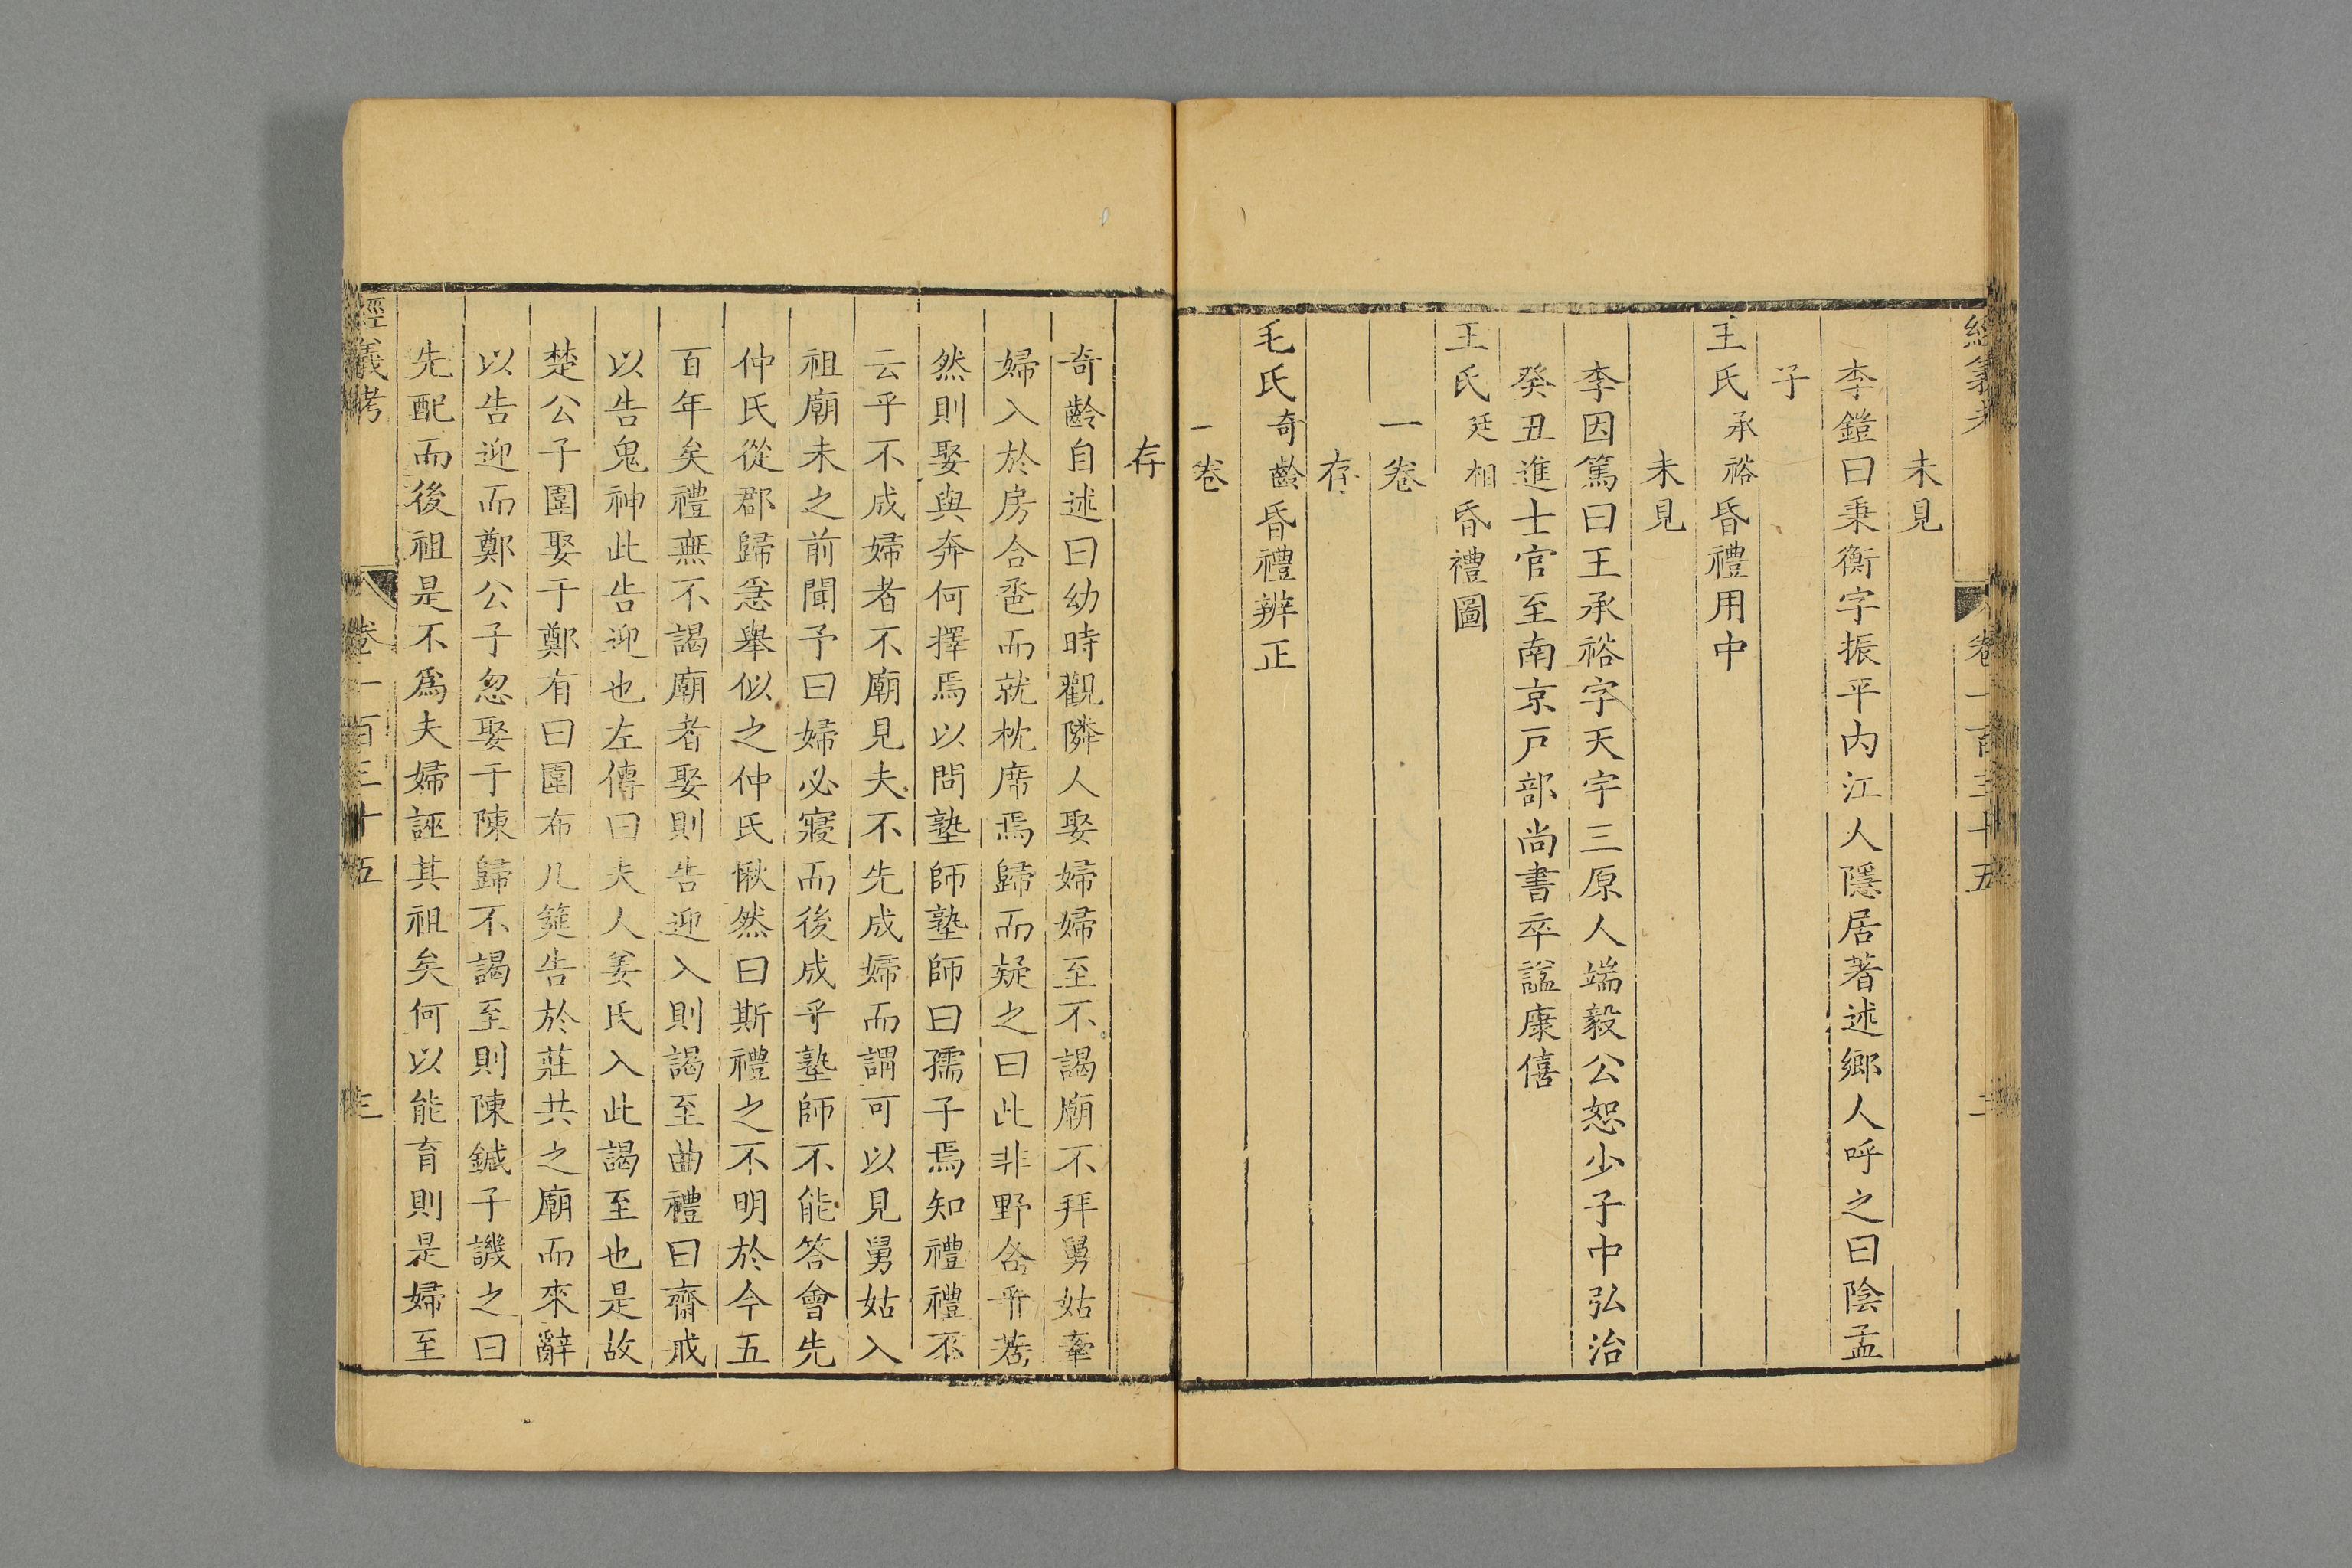 經義考 卷一百三十五 二
未見
李鎧曰秉衡字振平内江人隱居著述鄉人呼之曰陰孟
子
王氏承裕昏禮用中
未見
李因篤曰王承裕字天宇三原人端毅公恕少子中弘治
癸丑進士官至南京戸部尚書卒諡康僖
王氏廷相昏禮圖
一卷
存
毛氏奇齡昏禮辨正
一卷
存
奇齡自述曰幼時觀隣人娶婦婦至不謁廟不拜舅姑牽
婦入於房合巹而就枕席焉歸而疑之曰此非野合乎若
然則娶與奔何擇焉以問塾師塾師曰孺子焉知禮禮不
云乎不成婦者不廟見夫不先成婦而謂可以見舅姑入
祖廟未之前聞予曰婦必寢而後成乎塾師不能答會先
仲氏從郡歸恚舉似之仲氏愀然曰斯禮之不明於今五
百年矣禮無不謁廟者娶則告迎入則謁至曲禮曰齋戒
以告鬼神此告迎也左傳曰夫人姜氏入此謁至也是故
楚公子圍娶于鄭有曰圍布几筵告於莊共之廟而來辭
以告迎而鄭公子忽娶于陳歸不謁至則陳鍼子譏之曰
先配而後祖是不爲夫婦誣其祖矣何以能育則是婦至
經義考 卷一百三十五 三